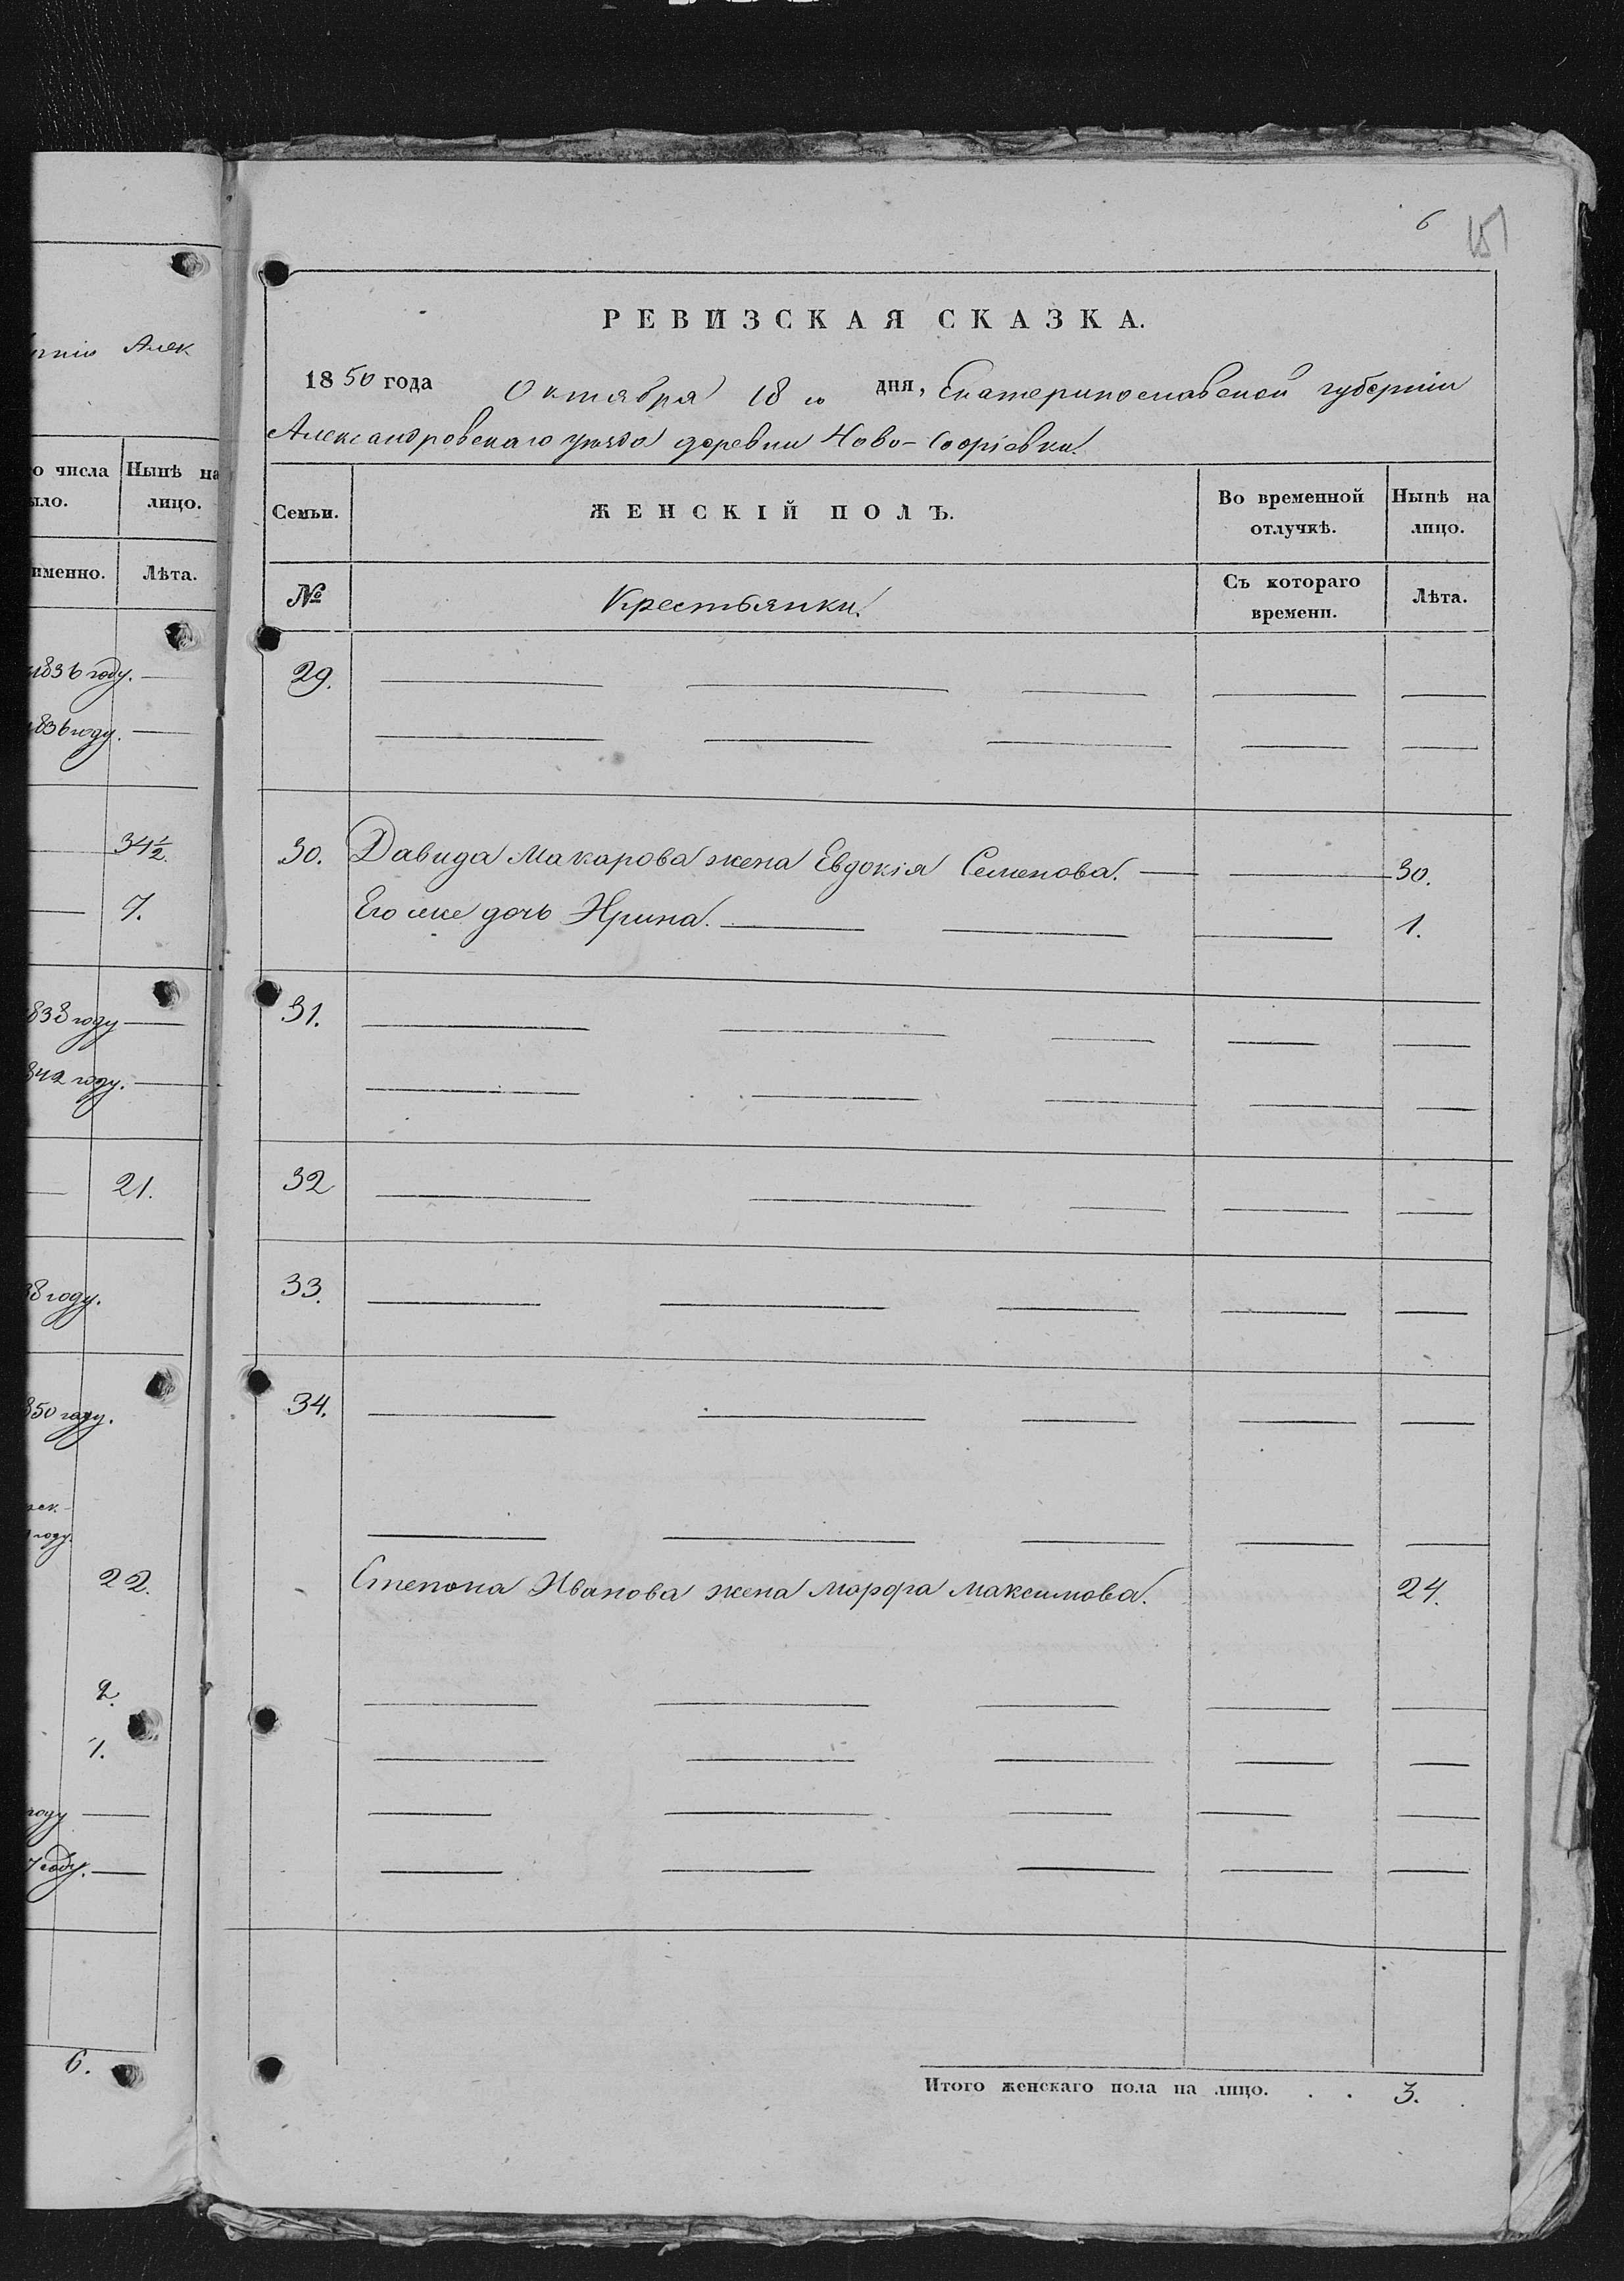 6
РЕВИЗСКАЯ СКАЗКА.
1850 года Октября 18 го дня, Екатеринославской губерніи
Александровскаго уѣзда деревни Ново-
Семьи. ЖЕНСКІЙ ПОЛЪ. Во временной отлучкѣ. Нынѣ на лицо.
№ Крестьянки. Съ котораго времени. Лѣта.
29.
30. Давида Макарова жена Евдокія Семенова. 30.
Его же дочь Ирина. 1.
31.
32
33.
34.
Степана Иванова жена Марфа Максимова. 24.
Итого женскаго пола на лицо. . . 3.
Алек
числа Нынѣ на
лицо.
именно. Лѣта.
1836 году.
1836 году.
34½.
7.
году
году.
21.
году.
году.
году.
22.
2.
1.
году
году.
6.